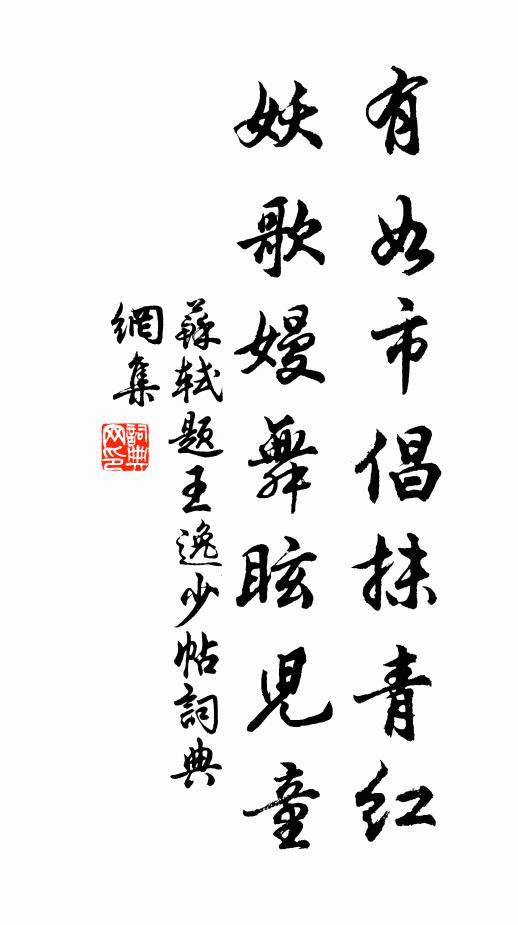 有如市倡抹青紅
妖歌嫚舞眩兒童
蘇軾題王逸少帖詞典
網集
詞典網印